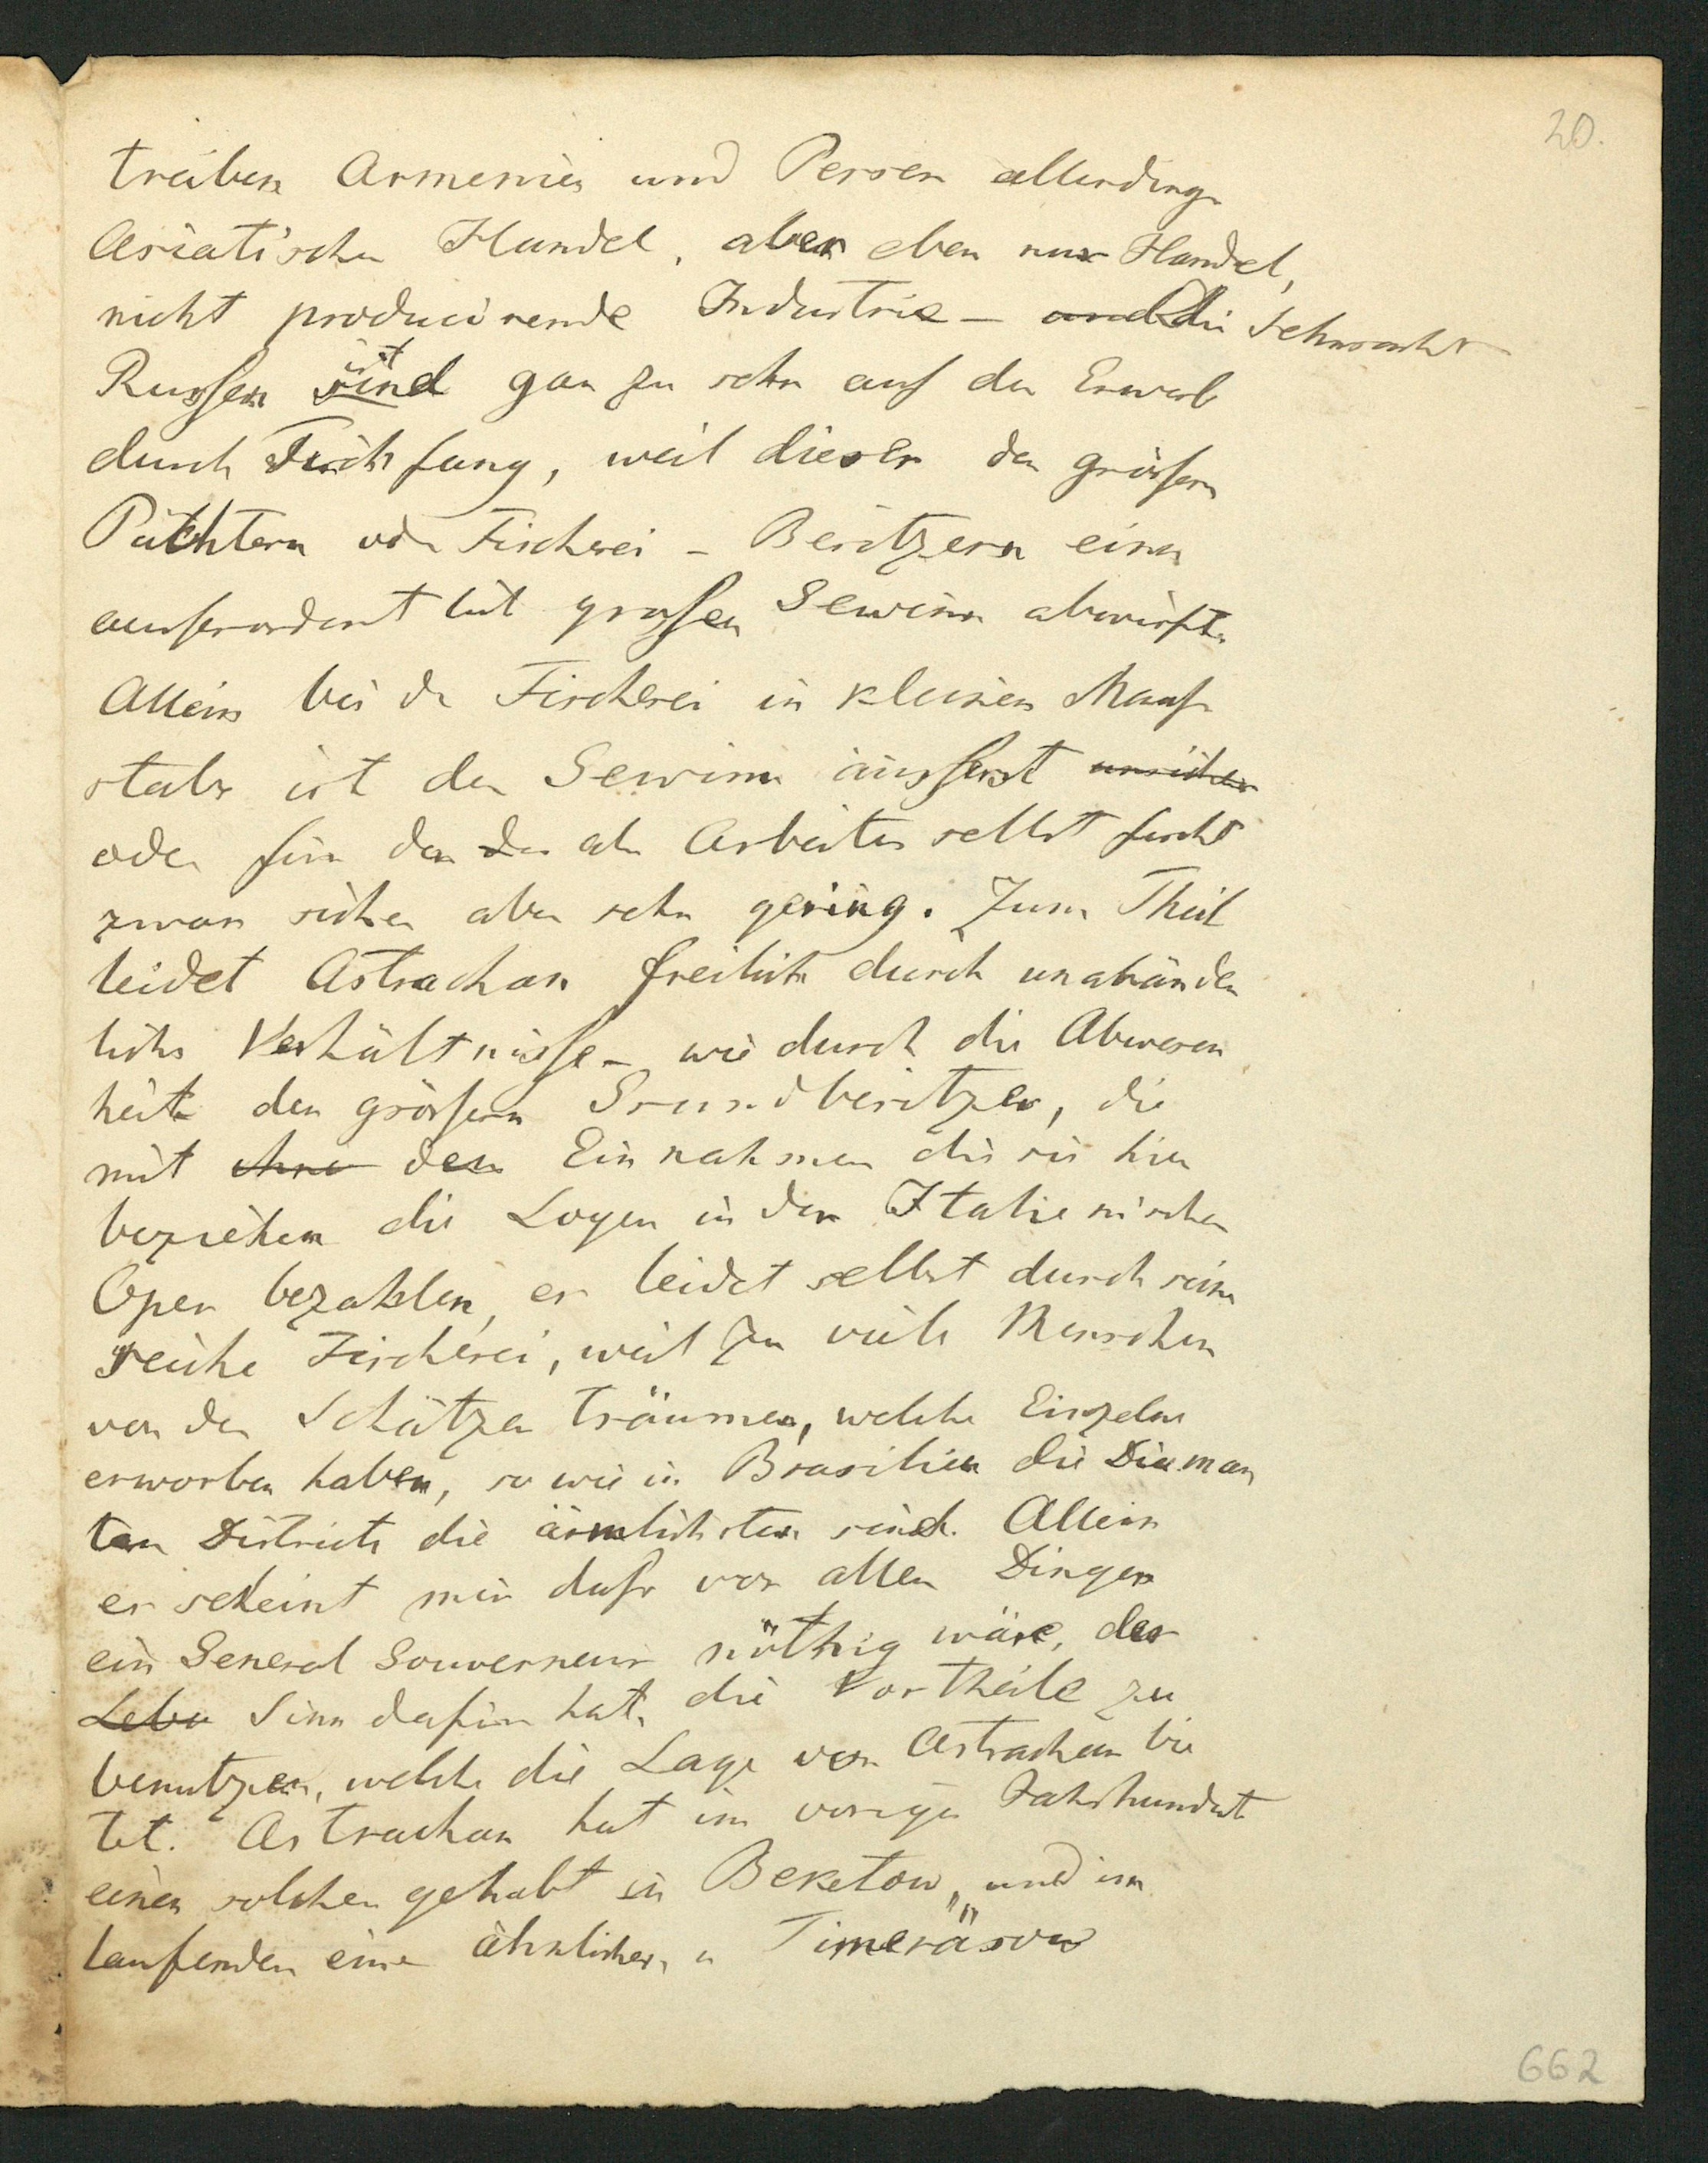 20.
treiben Armenier und Perser allerdings
Asiatischen Handel, aber eben nur Handel,
nicht producirende Industrie – und die Sehnsucht
Russen sind ist gar zu sehr auf den Erwerb
durch Fischfang, weil dieser den grössern
Pächtern oder Fischerei-Besitzern einen
ausserordentlich grossen Gewinn abwirft.
Allein bei der Fischerei in kleinen Maass
stabe ist der Gewinn äusserst unsicher
oder für den der als Arbeiter selbst fischt
zwar sicher aber sehr gering. Zum Theil
leidet Astrachan freilich durch unabänder
liche Verhältnisse – wie durch die Abwesen
heit der grössern Grundbesitzer, die
mit ihre den Einnahmen die sie hier
beziehen die Logen in der Italienischen
Oper bezahlen, es leidet selbst durch seine
reiche Fischerei, weil zu viele Menschen
von den Schätzen träumen, welche Einzelne
erworben haben, so wie in Brasilien die Diaman
ten Districte die ärmlichsten sind. Allein
es scheint mir dass vor allen Dingen
ein General Gouverneur nöthig wäre, der
Lebe Sinn dafür hat, die Vortheile zu
benutzen, welche die Lage von Astrachan bie
tet. Astrachan hat im vorigen Jahrhundert
einen solchen gehabt in Beketow, und im
laufenden einen ähnlichen in Timeräsow
662